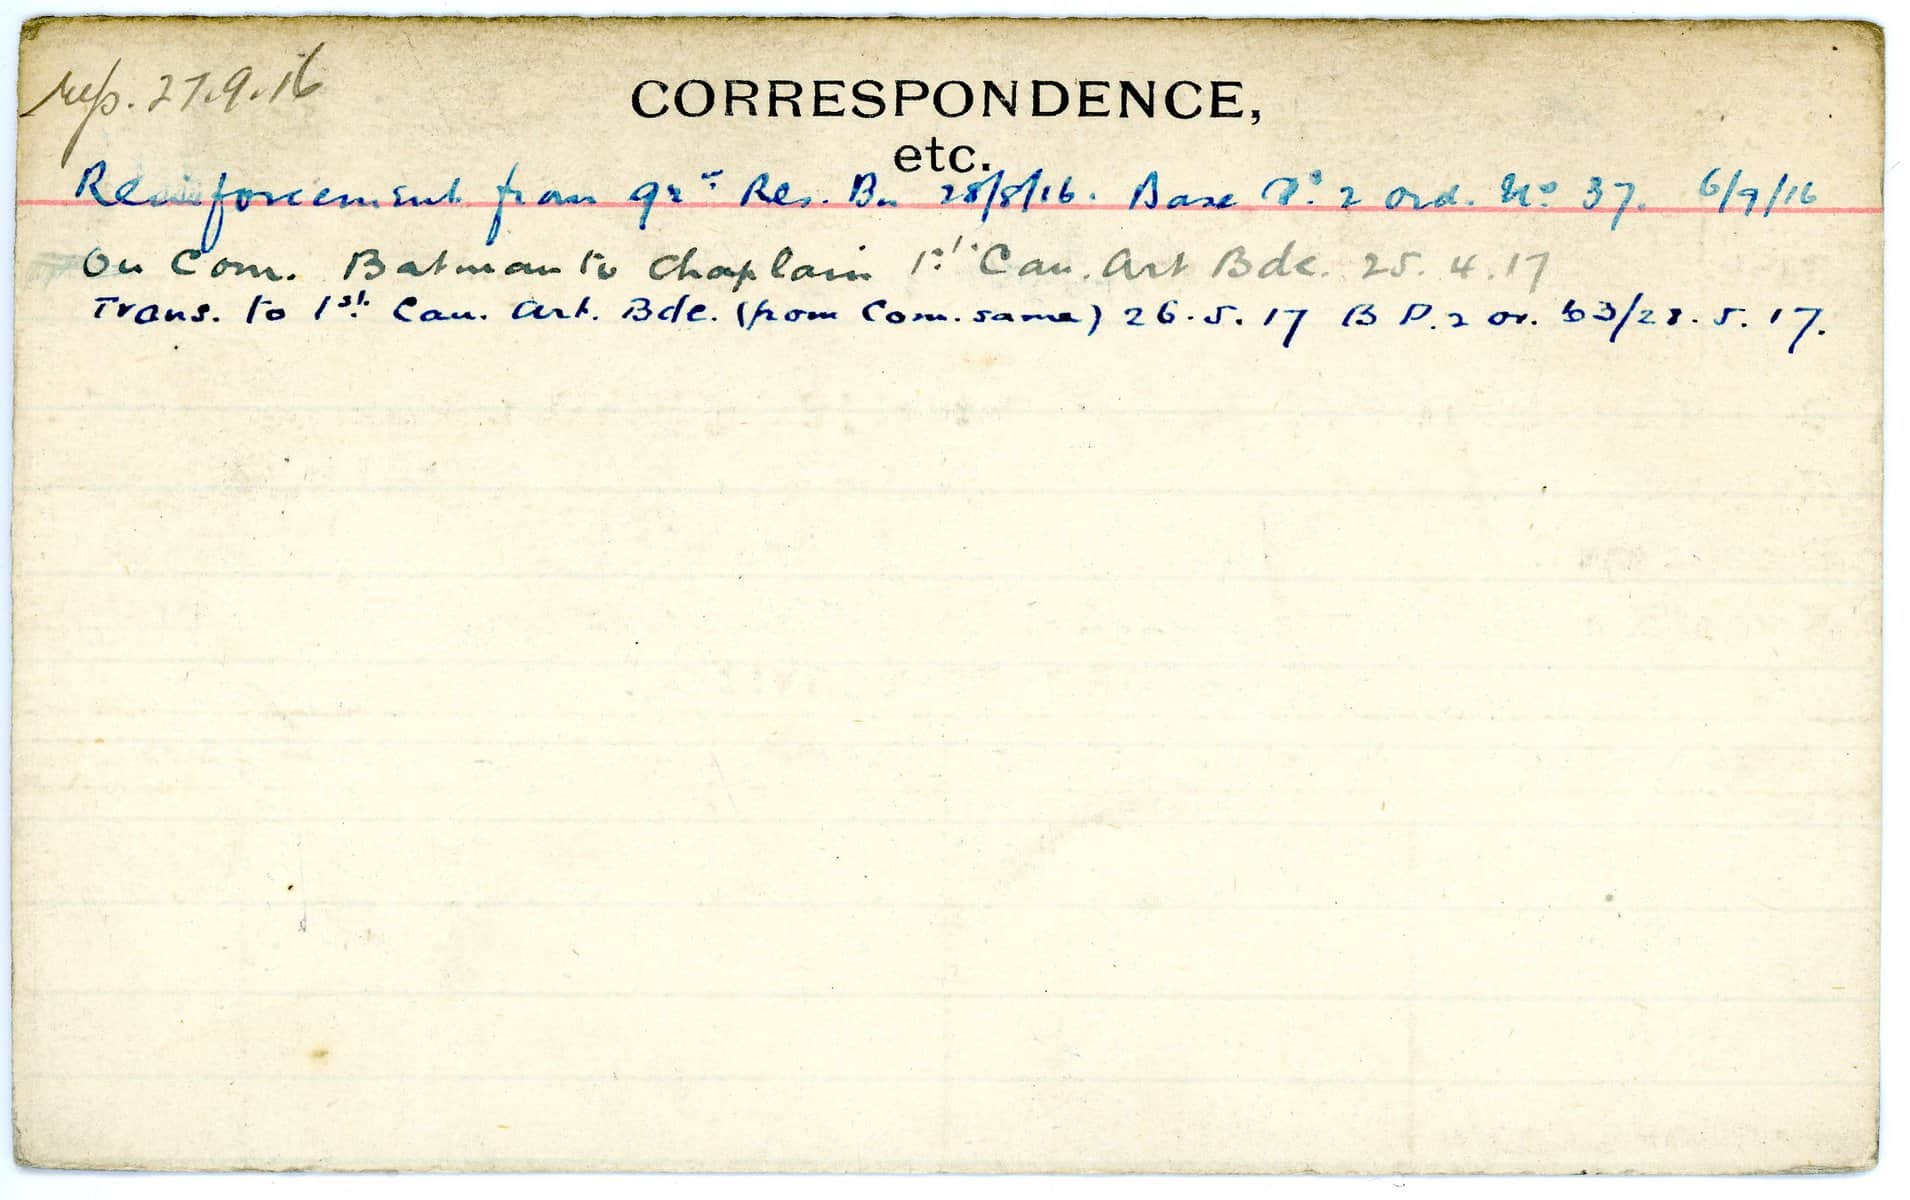 27.9.16
CORRESPONDENCE,
etc.
Reinforcement from Res. Bn 28/8/16. Base Pt 2 ord. No 37. 6/9/16
On Com. Batman to Chaplain 1st Can. Art Bde. 25.4.17
Trans. to 1st Can. Art. Bde. (from Com. same) 26.5.17 B P.2 or. 63/28.5.17.